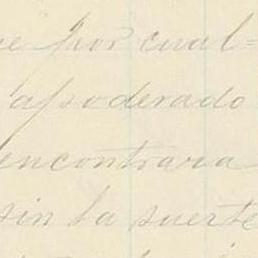 ue por cual=
apoderado
encontrara
sin la suerte